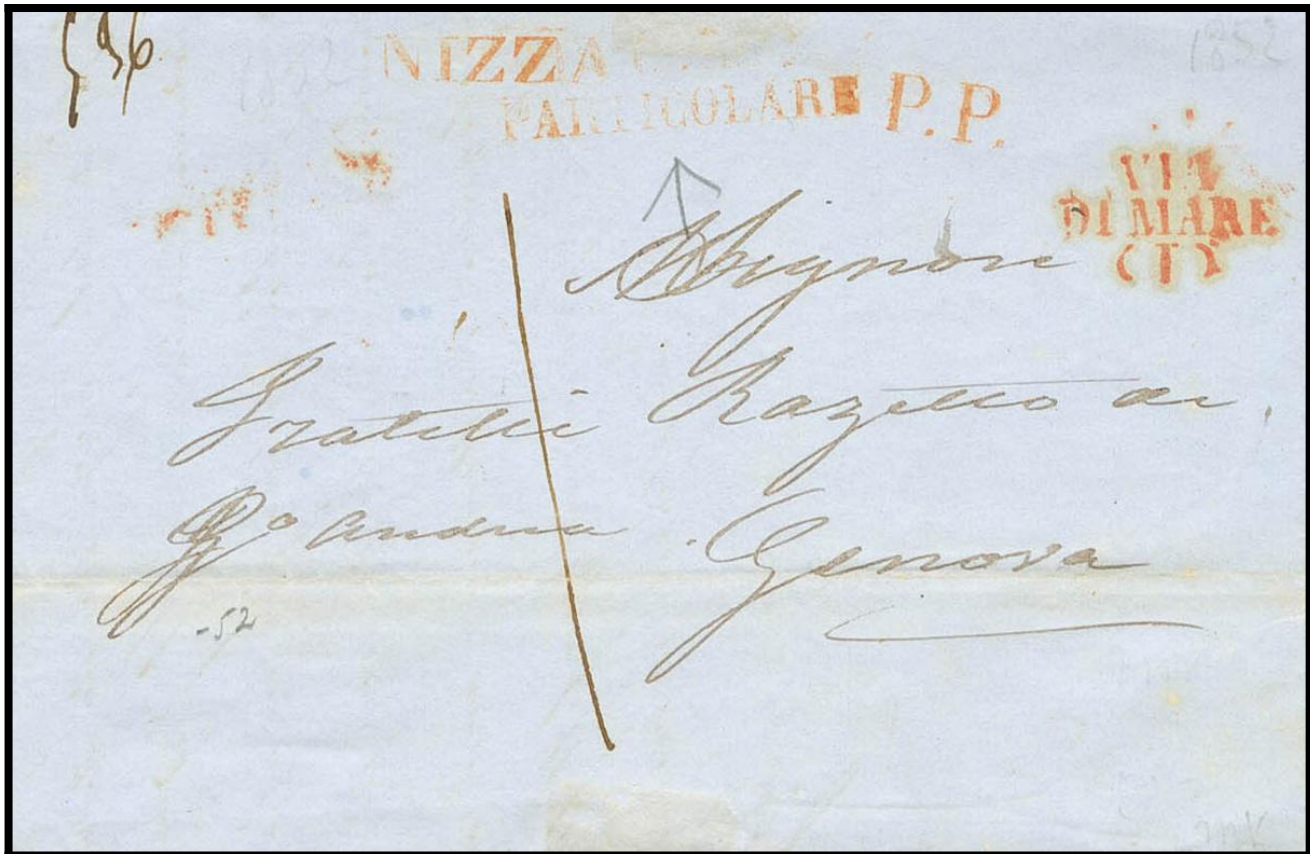 596
1852
NIZZA
PARTICOLARE P.P.
VIA
DI MARE
(I)
Signori
Fratelli Razetto di
Andrea Genova
-52